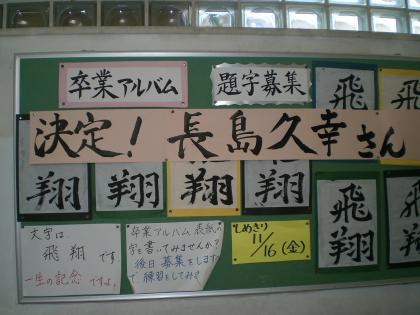 卒業アルバム
題字募集
決定!長島久幸さん
飛
飛
翔
翔
翔
翔
飛翔
翔
文字は
飛翔です
一生の記念ですよ。
卒業アルバム表紙の
字を書いてみませんか?
後日募集をします
練習をしてみ
しめきり
11/16(金)